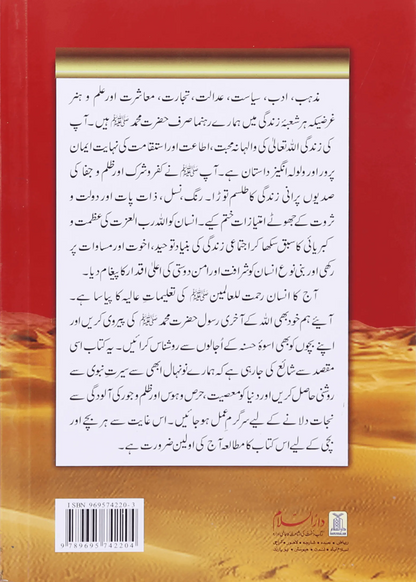 مذہب، ادب، سیاست، عدالت، تجارت، معاشرت اور علم و ہنر
غرضیکہ ہر شعبۂ زندگی میں ہمارے رہنما صرف حضرت محمد ﷺ ہیں۔ آپ
کی زندگی اللہ تعالیٰ کی والہانہ محبت، اطاعت اور استقامت کی نہایت ایمان
پرور اور ولولہ انگیز داستان ہے۔ آپ ﷺ نے کفر و شرک اور ظلم و جفا کی
صدیوں پرانی زندگی کا طلسم توڑا۔ رنگ، نسل، ذات پات اور دولت و
ثروت کے جھوٹے امتیازات ختم کیے۔ انسان کو اللہ رب العزت کی عظمت و
کبریائی کا سبق سکھا کر اجتماعی زندگی کی بنیاد توحید، اخوت اور مساوات پر
رکھی اور بنی نوع انسان کو شرافت اور امن دوستی کی اعلیٰ اقدار کا پیغام دیا۔
آج کا انسان رحمت للعالمین ﷺ کی تعلیماتِ عالیہ کا پیاسا ہے۔
آیئے ہم خود بھی اللہ کے آخری رسول حضرت محمد ﷺ کی پیروی کریں اور
اپنے بچوں کو بھی اسوۂ حسنہ کے اُجالوں سے روشناس کرائیں۔ یہ کتاب اسی
مقصد سے شائع کی جا رہی ہے کہ ہمارے نونہال ابھی سے سیرتِ نبوی سے
روشنی حاصل کریں اور دنیا کو معصیت، حرص و ہوس اور ظلم و جور کی آلودگی سے
نجات دلانے کے لیے سرگرمِ عمل ہو جائیں۔ اس غایت سے ہر بچے اور
بچی کے لیے اس کتاب کا مطالعہ آج کی اولین ضرورت ہے۔
ISBN 969574220-3
9 789695 742204
دارالسلام